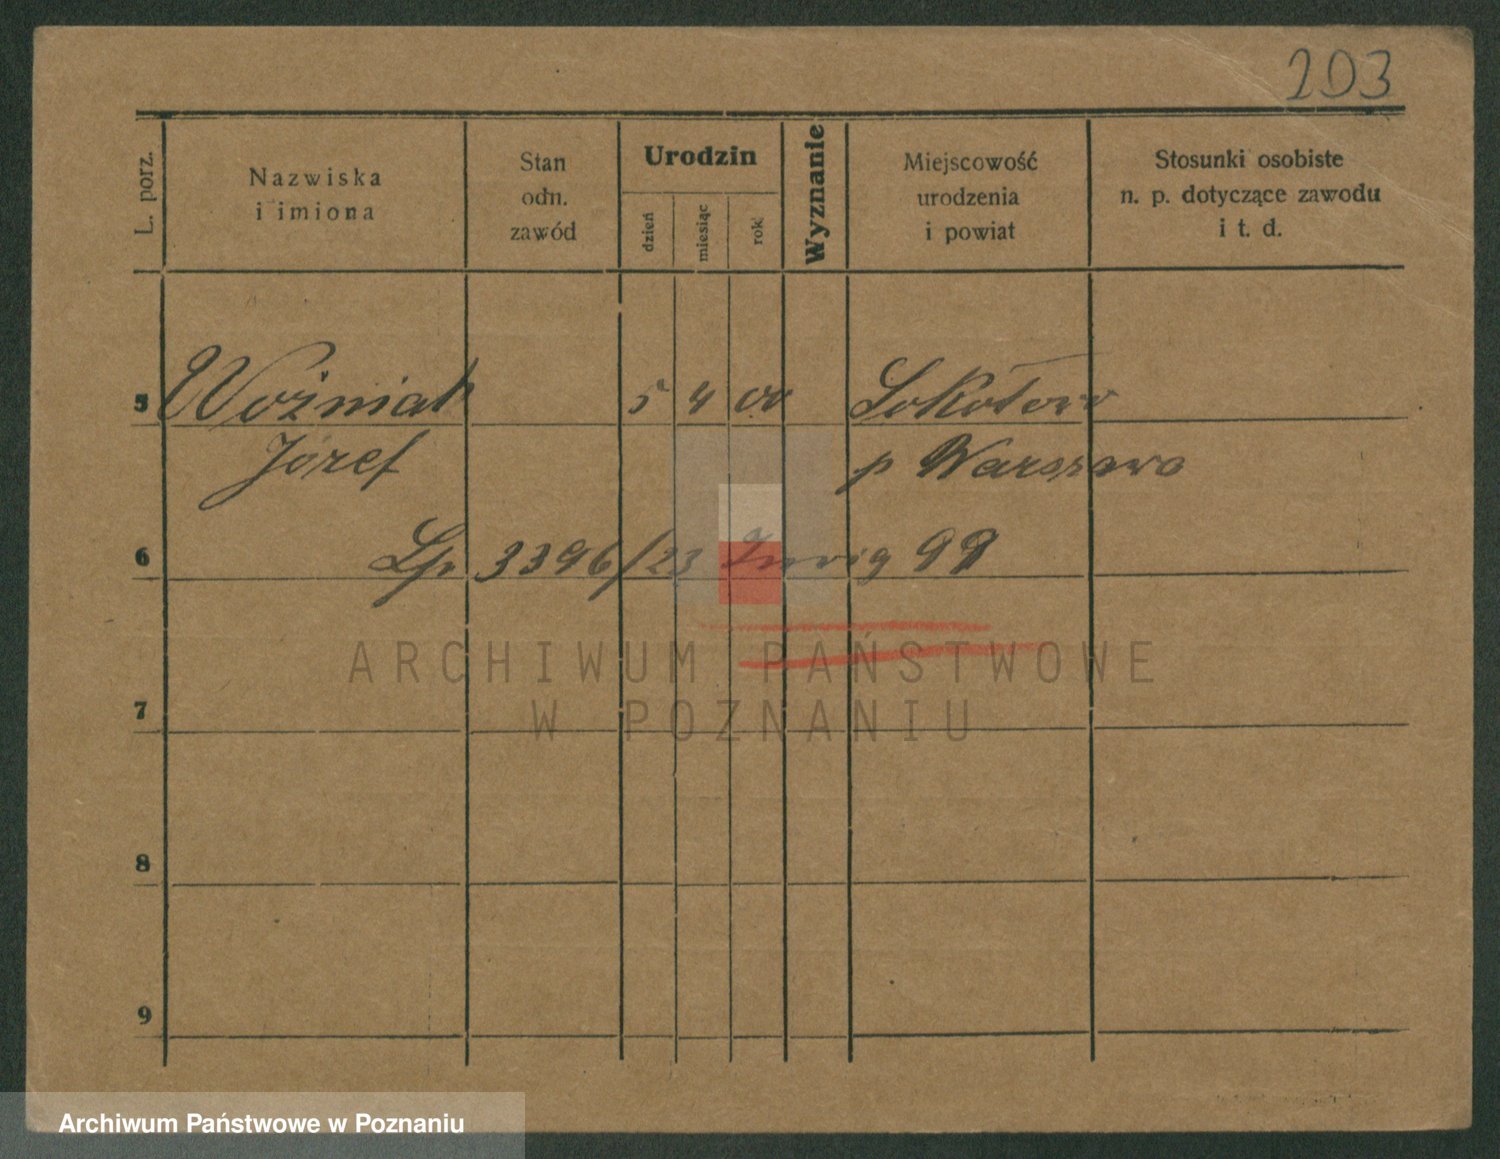 203
L. porz.
Nazwiska
i imiona
Stan
odn.
zawód
Urodzin
dzień
miesiąc
rok
Wyznanie
Miejscowość
urodzenia
i powiat
Stosunki osobiste
n. p. dotyczące zawodu
i t. d.
5 Woźniak 5 4 00 Sokołowo
Józef p Warszawa
6 Lp. 3396/23 99
7
8
9
ARCHIWUM PAŃSTWOWE
W POZNANIU
Archiwum Państwowe w Poznaniu